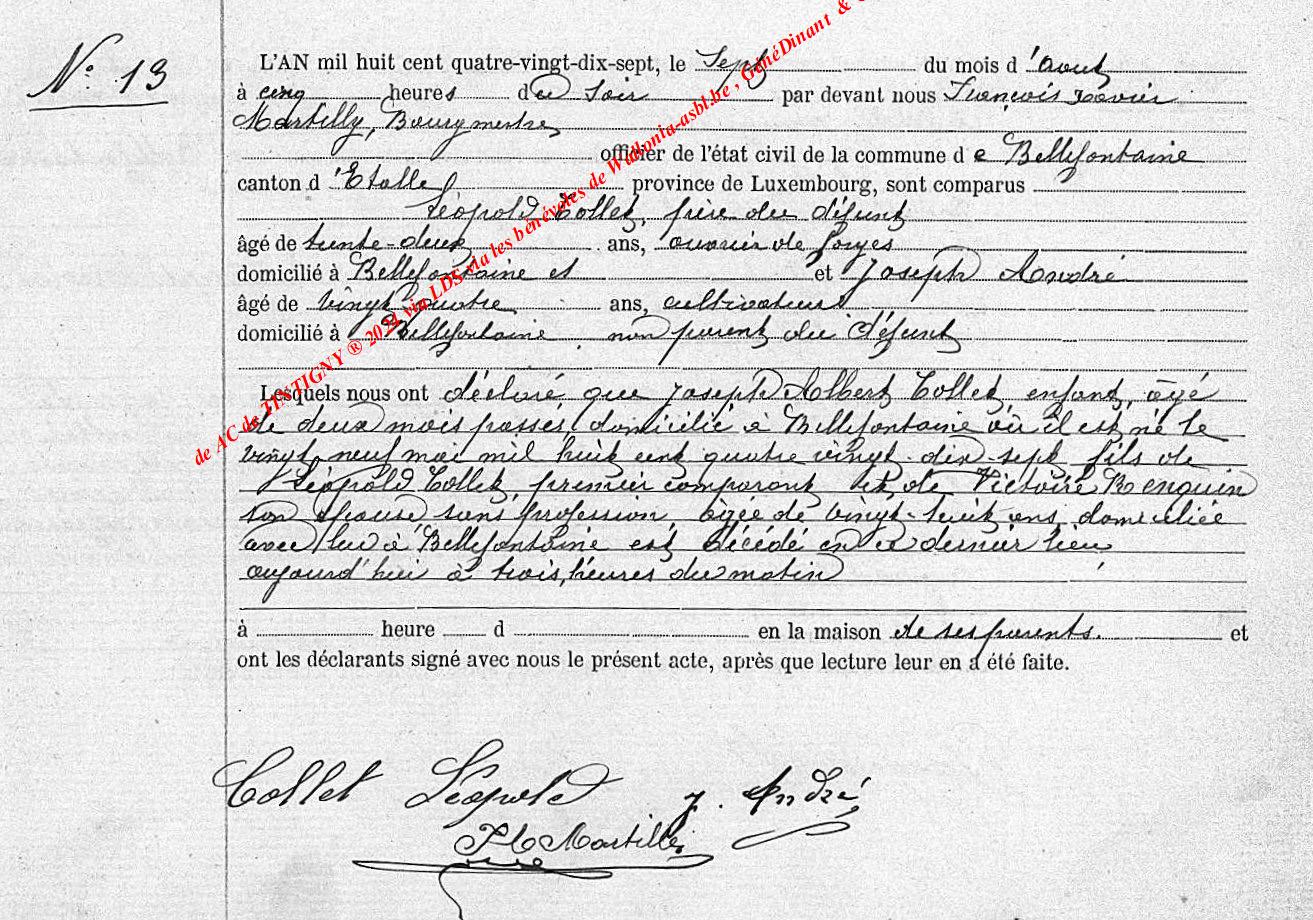 N° 13
L'AN mil huit cent quatre-vingt-dix-sept, le Sept du mois d'aout
à cinq heures du soir par devant nous François Xavier
Martilly, Bourgmestre
officier de l'état civil de la commune de Bellefontaine
canton d'Etalle province de Luxembourg, sont comparus
Léopold Collet, père du défunt
âgé de trente-deux ans, ouvrier de forges
domicilié à Bellefontaine et et Joseph André
âgé de vingt quatre ans, cultivateur
domicilié à Bellefontaine, non parent du défunt
Lesquels nous ont déclaré que Joseph Albert Collet enfant, âgé
de deux mois passés, domicilié à Bellefontaine où il est né le
vingt neuf mai mil huit cent quatre vingt dix-sept fils de
Léopold Collet, premier comparant et de Victoire Renquin
son épouse sans profession âgée de vingt-huit ans domiciliée
avec lui à Bellefontaine est décédé en ce dernier lieu
aujourd'hui à trois heures du matin
à heure d en la maison de ses parents. et
ont les déclarants signé avec nous le présent acte, après que lecture leur en a été faite.
Collet Léopold J. André
Martilly
de AC de TINTIGNY ® 2021 via LDS via les bénévoles de Wallonia-asbl.be, GénéDinant &